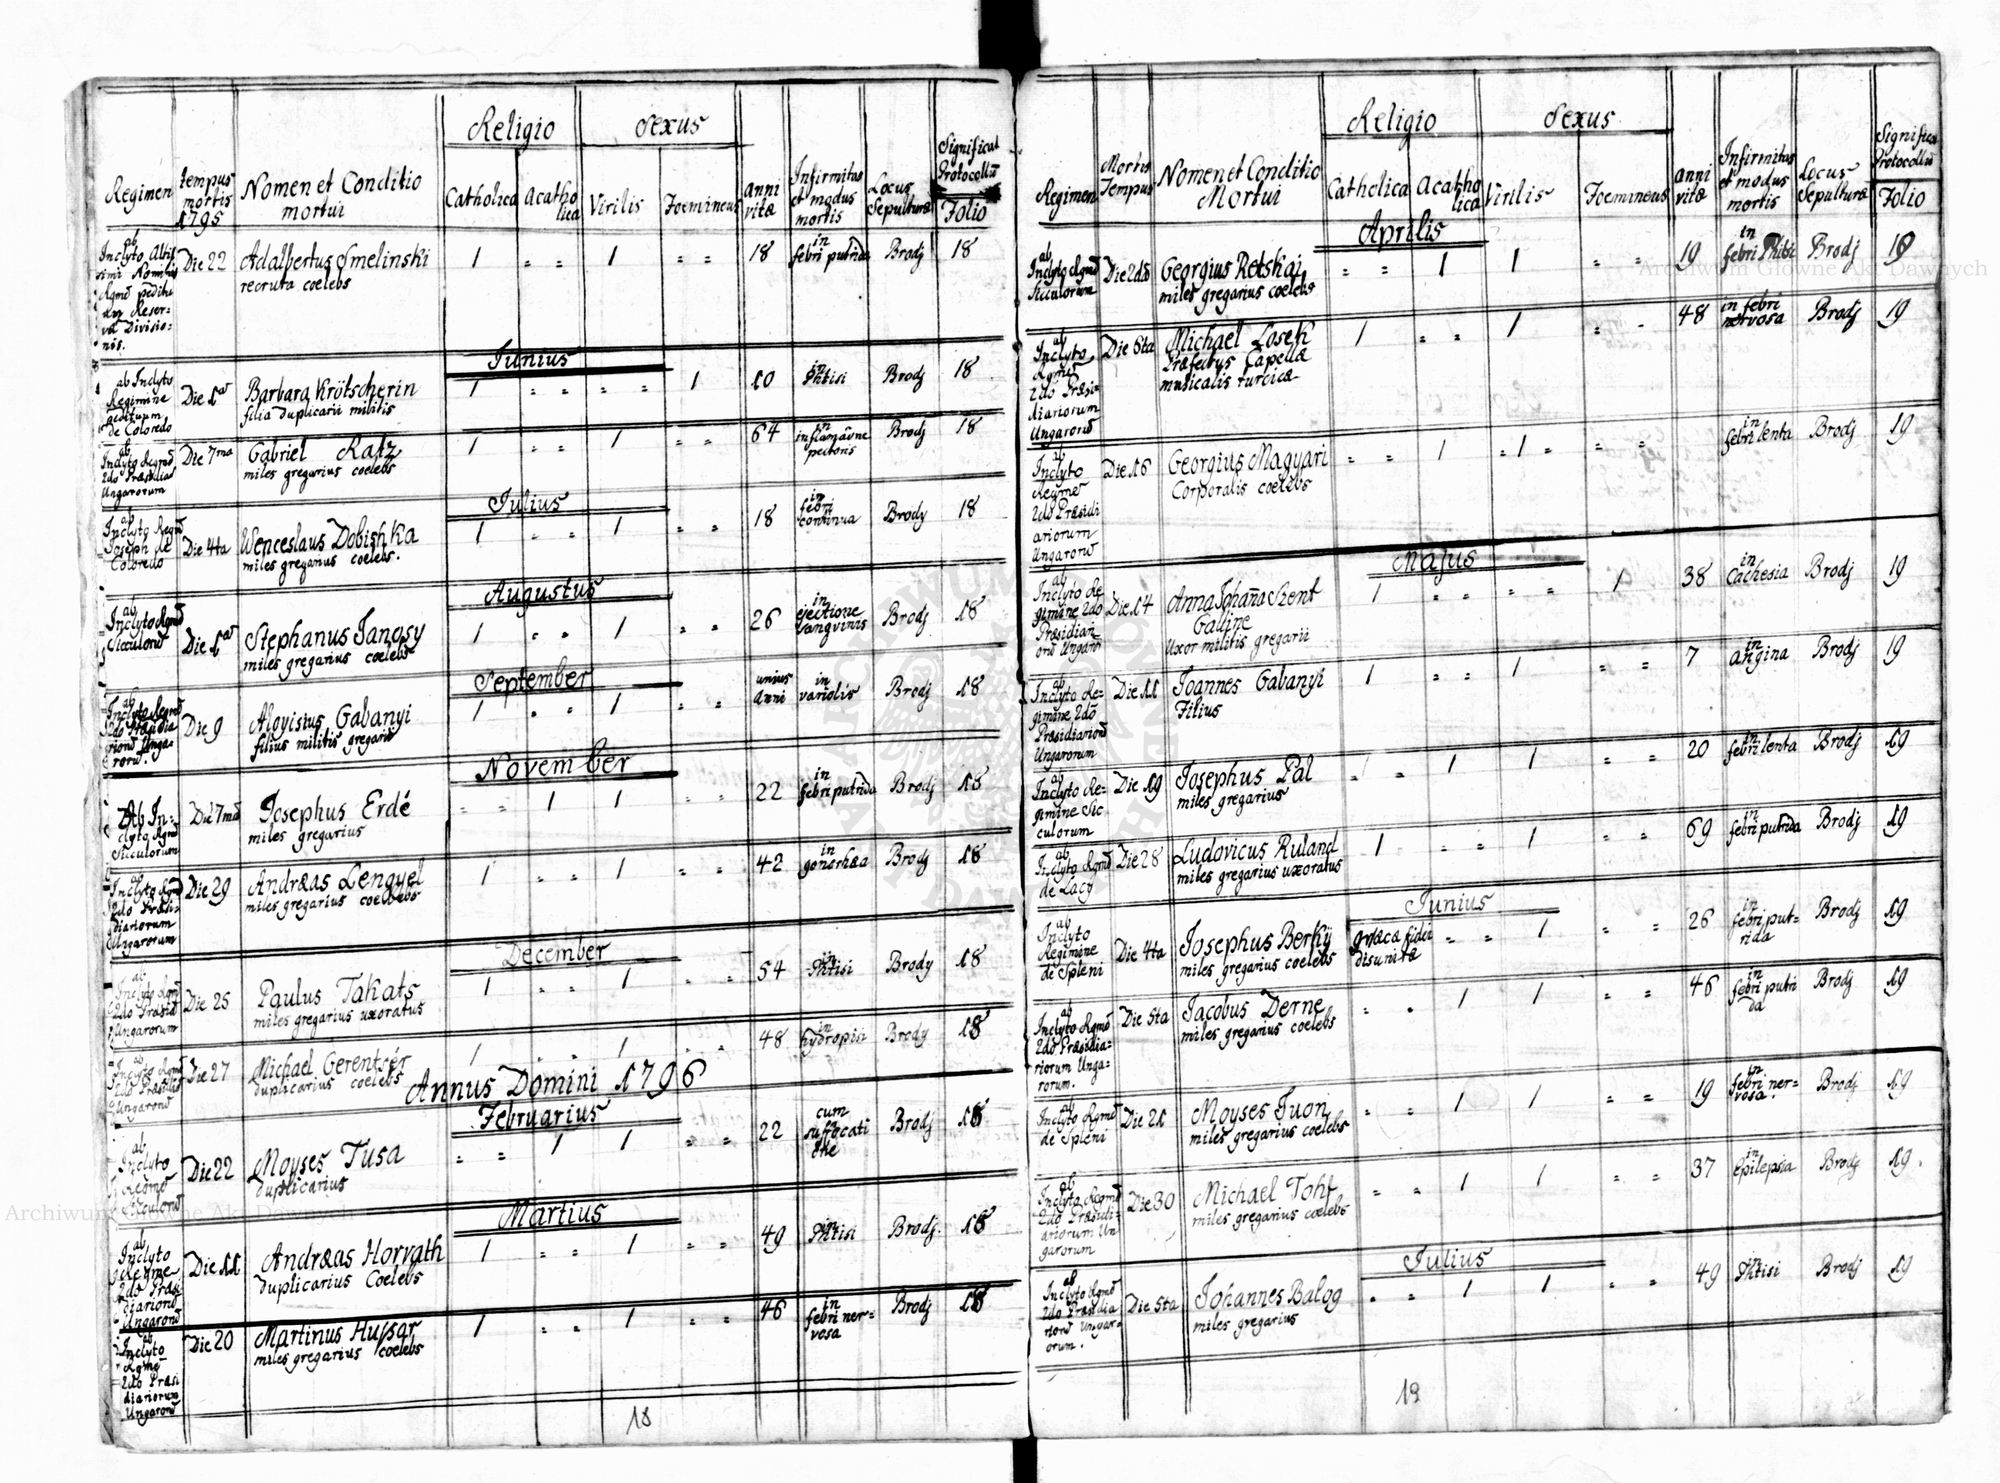 Religio Sexus Significat
Regimen tempus mortis 1795 Nomen et Conditio mortui Catholica Acatholica Virilis Foemineus anni vitæ Infirmitas et modus mortis Locus Sepulturæ Protocollũ Folio
ab Inclyto Die 22 Adalbertus Smelinski 1 18 in febri putrida Brodj 18
recruta coelebs
Junius
ab Inclyto Regimine de Coloredo Die 1a Barbara Krötscherin 1 1 10 in Phtisi Brodj 18
filia duplicarii militis
ab Inclyto Regmẽ 2do Præsidia Ungarorum Die 7ma Gabriel Ratz 1 1 64 in inflamãone pectoris Brodj 18
miles gregarius coelebs
Julius
ab Inclyto Regmẽ Joseph de Coloredo Die 4ta Wenceslaus Dobishka 1 1 18 in febri continua Brody 18
miles gregarius coelebs.
Augustus
ab Inclyto Regmẽ Siculorũ Die 1a Stephanus Janosy 1 1 26 in ejectione sanguinis Brodj 18
miles gregarius coelebs
September
ab Inclyto Regmẽ 2do Præsidiariorũ Ungarorũ. Die 9 Aloysius Gabanyi 1 1 unius anni in variolis Brodj 18
filius militis gregarii
November
Ab Inclyto Rgmẽ Siculorum Die 7mã Josephus Erdé 1 1 22 in febri putrida Brodj 18
miles gregarius
ab Inclyto Rgmẽ 2do Præsidiariorum Ungarorum Die 29 Andræas Lengyel 1 1 42 in gonorhæa Brodj 18
miles gregarius coelebs
December
ab Inclyto Rgmẽ 2do Præsid Ungarorum Die 25 Paulus Takats 1 1 54 in Phtisi Brody 18
miles gregarius uxoratus
ab Inclyto Rgmẽ 2do Præsidia Ungarorũ Die 27 Michael Gerentsér 1 1 48 in hydropisi Brody 18
duplicarius coelebs
Annus Domini 1796
Februarius
ab Inclyto Regmẽ Siculorũ Die 22 Moyses Tusa 1 1 22 cum suffocati Brodj 18
duplicarius
Martius
ab Inclyto Regme 2do Præsidiariorũ Ungarorũ Die 11 Andræas Horvath 1 1 49 in Phtisi Brodj. 18
duplicarius Coelebs
ab Inclyto Rgme 2do Præsidiariorum Ungarorũ Die 20 Martinus Hussar 1 1 46 in febri nervosa Brodj 18
miles gregarius coelebs
18
Religio Sexus Significat
Regimen Mortis Tempus Nomen et Conditio Mortui Catholica Acatholica Virilis Foemineus anni vitæ Infirmitas et modus mortis Locus Sepulturæ Protocollũ Folio
Aprilis
ab Inclyto Rgmẽ Siculorum Die 2dã Georgius Retskai 1 1 19 in febri Phtisi Brodj 19
miles gregarius coelebs
ab Inclyto Rgmẽ 2do Præsidiariorum Ungarorũ Die 6ta Michael Losek 1 1 48 in febri nervosa Brodj 19
Præfectus Capellæ
musicalis turcicæ
ab Inclyto Regme 2do Præsidiariorum Ungarorũ Die 16 Georgius Magyari 1 1 in febri lenta Brodj 19
Corporalis coelebs
Majus
ab Inclyto Regimine 2do Præsidiariorũ Ungarorũ Die 14 Anna Johaña Szent 1 1 38 in Cachesia Brodj 19
Galline
Uxor militis gregarii
ab Inclyto Regimine 2do Præsidiariorũ Ungarorum Die 11 Joannes Gabanyi 1 1 7 in angina Brodj 19
Filius
ab Inclyto Regimine Siculorum Die 19 Josephus Pal 1 1 20 in febri lenta Brodj 19
miles gregarius
ab Inclyto Rgmẽ de Lacy Die 28 Ludovicus Ruland 1 1 69 in febri putrida Brodj 19
miles gregarius uxoratus
Junius
ab Inclyto Regimine de Spleni Die 4ta Josephus Berky græcæ fidei disunitæ 1 26 in febri putrida Brodj 19
miles gregarius coelebs
ab Inclyto Rgmẽ 2do Præsidiariorum Ungarorum. Die 5ta Jacobus Derne 1 1 46 in febri putrida Brodj 19
miles gregarius coelebs
ab Inclyto Rgmẽ de Spleni Die 21 Moyses Juon 1 1 19 in febri nervosa. Brodj 19
miles gregarius coelebs
ab Inclyto Regmẽ 2do Præsidiariorum Ungarorum Die 30 Michael Toht 1 1 37 in Epilepsia Brodj 19.
miles gregarius coelebs
Julius
ab Inclyto Rgmẽ 2do Præsidiariorũ Ungarorum. Die 5ta Johannes Balog 1 1 49 in Phtisi Brodj 19
miles gregarius
19
Archiwum Główne Akt Dawnych
Archiwum Główne Akt Dawnych